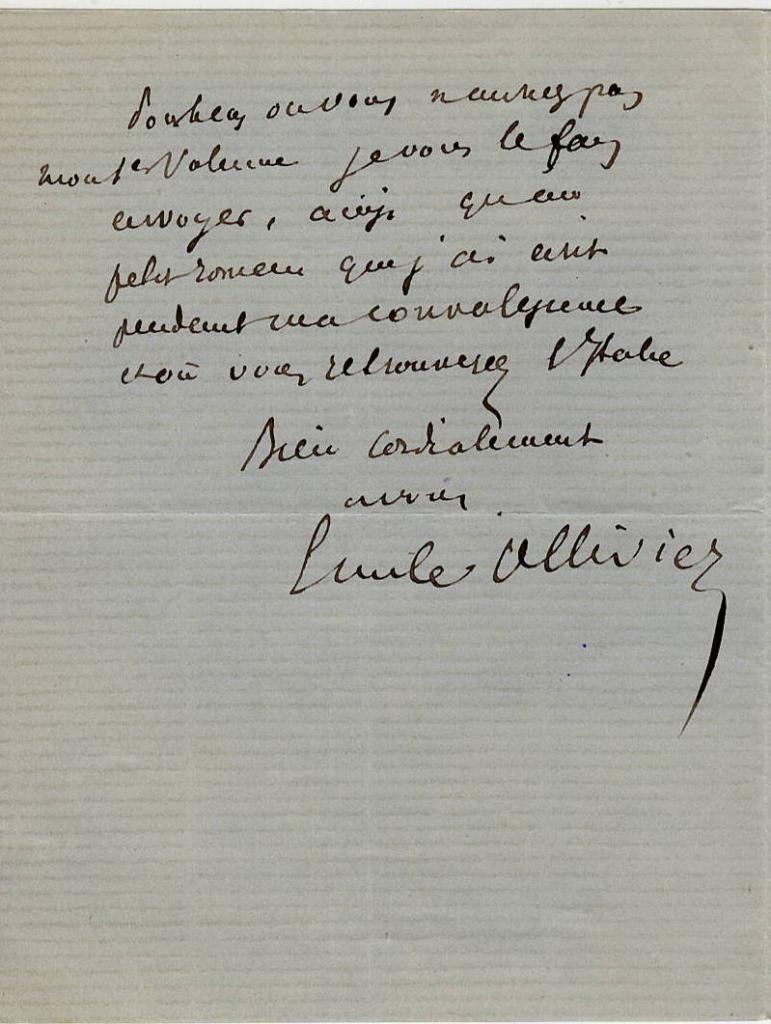 où vous n'auriez pas
mon 1er Volume je vous le fais
envoyer, ainsi qu'un
petit roman que j'ai écrit
pendant ma convalescence
et où vous retrouverez l'Italie
Bien cordialement
à vous
Emile Ollivier